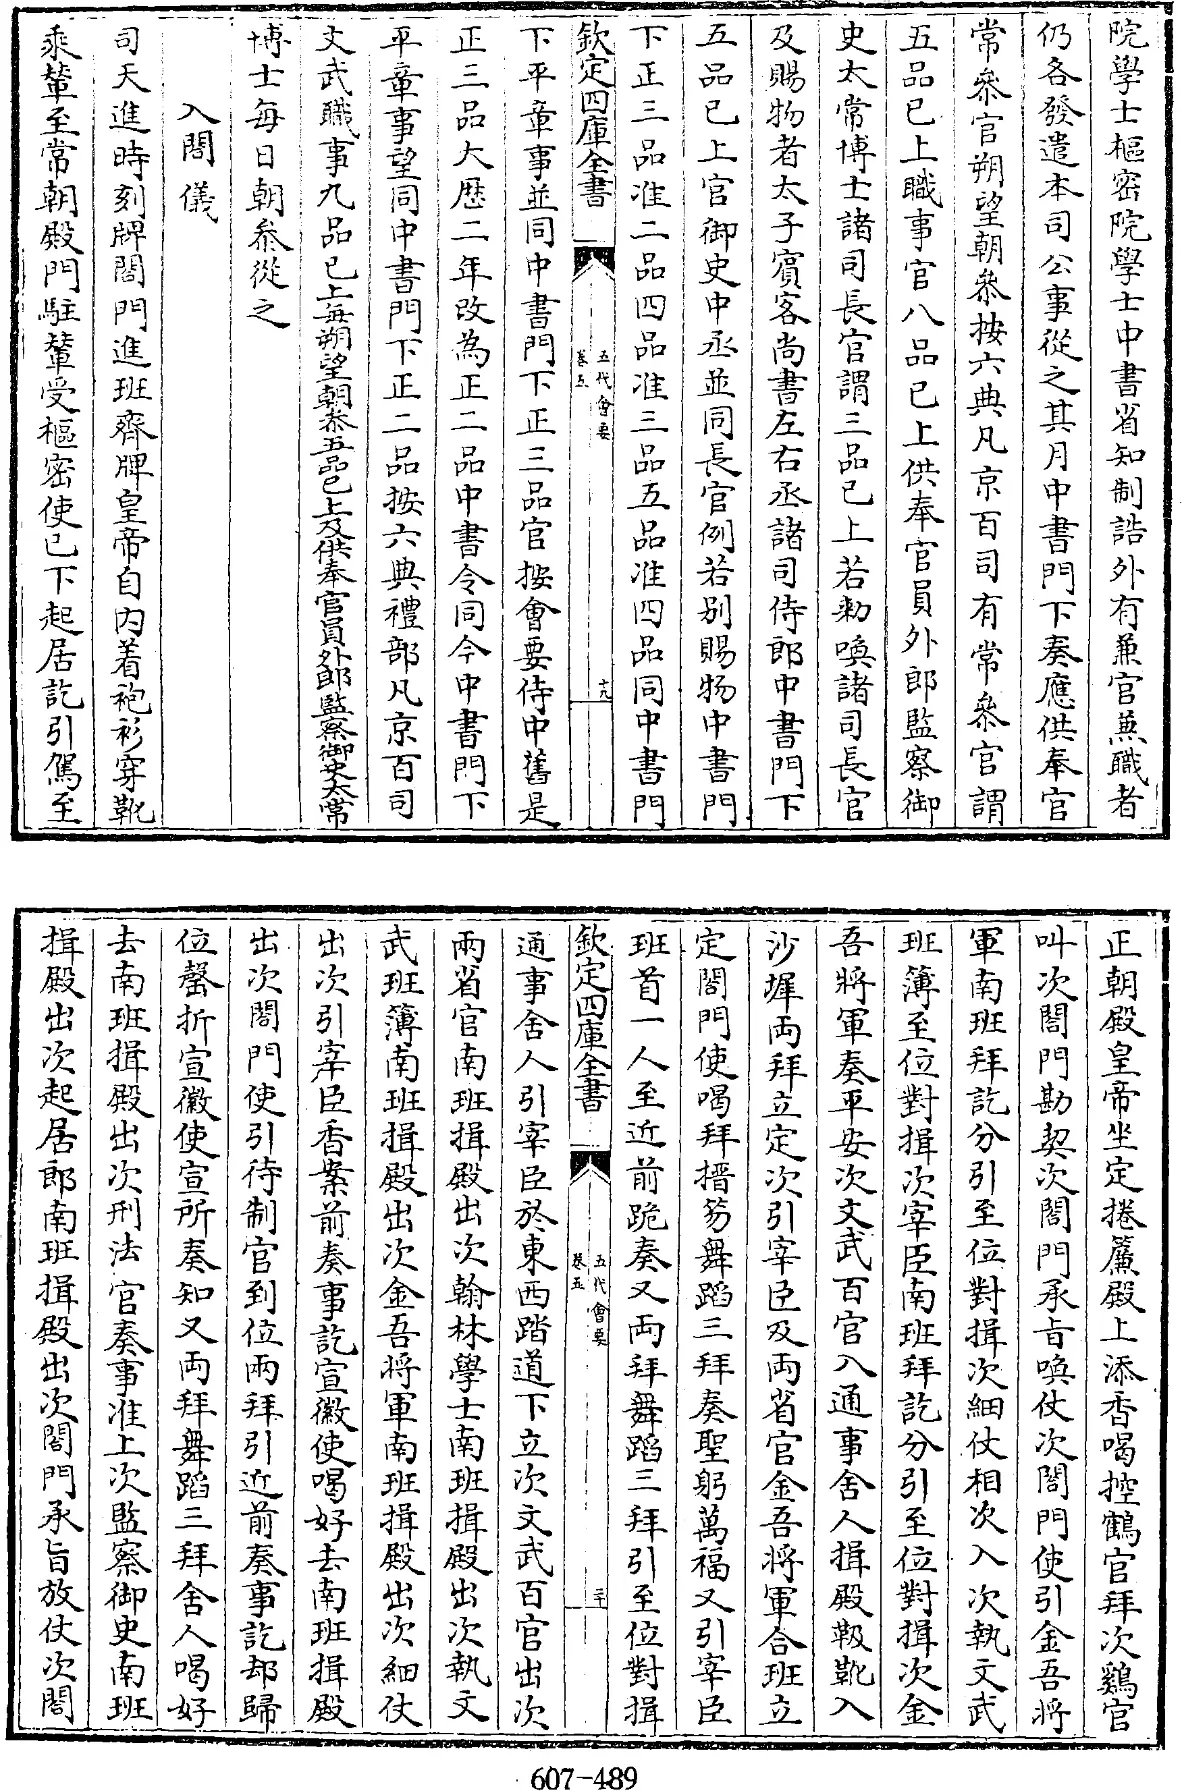 院學士樞密院學士中書省知制誥外有兼官兼職者
仍各發遣本司公事從之其月中書門下奏應供奉官
常叅官朔望朝叅按六典凡京百司有常叅官謂
五品已上職事官八品已上供奉官員外郎監察御
史太常博士諸司長官謂三品已上若勅喚諸司長官
及賜物者太子賓客尚書左右丞諸司侍郎中書門下
五品已上官御史中丞並同長官例若别賜物中書門
下正三品准二品四品准三品五品准四品同中書門
欽定四庫全書
五代會要
卷五
十九
下平章事並同中書門下正三品官按會要侍中舊是
正三品大厯二年改為正二品中書令同今中書門下
平章事望同中書門下正二品按六典禮部凡京百司
文武職事九品已上每朔望朝叅五品已上及供奉官員外郎監察御史太常
博士每日朝叅從之
入閤儀
司天進時刻牌閤門進班齊牌皇帝自内着袍衫穿靴
乘輦至常朝殿門駐輦受樞密使已下起居訖引駕至
正朝殿皇帝坐定捲簾殿上添香喝控鶴官拜次鷄官
叫次閤門勘契次閤門承旨喚仗次閤門使引金吾將
軍南班拜訖分引至位對揖次細仗相次入次執文武
班簿至位對揖次宰臣南班拜訖分引至位對揖次金
吾將軍奏平安次文武百官入通事舍人揖殿靸靴入
沙墀兩拜立定次引宰臣及兩省官金吾將軍合班立
定閤門使喝拜搢笏舞蹈三拜奏聖躬萬福又引宰臣
班首一人至近前跪奏又兩拜舞蹈三拜引至位對揖
欽定四庫全書
五代會要
卷五
二十
通事舍人引宰臣於東西踏道下立次文武百官出次
兩省官南班揖殿出次翰林學士南班揖殿出次執文
武班簿南班揖殿出次金吾將軍南班揖殿出次細仗
出次引宰臣香案前奏事訖宣徽使喝好去南班揖殿
出次閤門使引待制官到位兩拜引近前奏事訖却歸
位罄折宣徽使宣所奏知又兩拜舞蹈三拜舍人喝好
去南班揖殿出次刑法官奏事准上次監察御史南班
揖殿出次起居郎南班揖殿出次閤門承旨放仗次閤
607-489